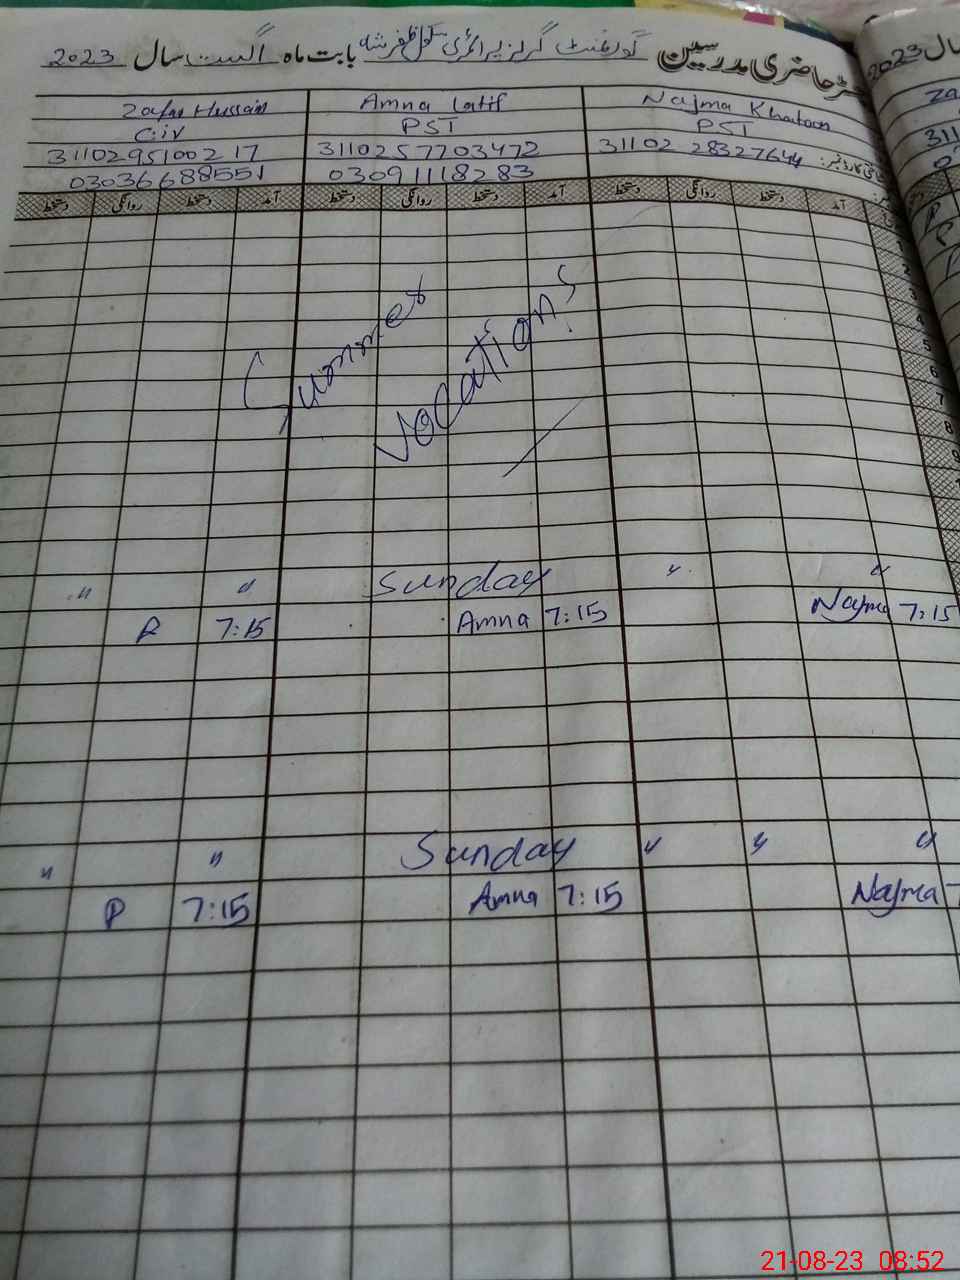 حاضری مدرسین گورنمنٹ گرلز پرائمری سکول ظفر شاہ بابت ماہ اگست سال 2023
سال 2023
Zafar Hussain Amna Latif Najma Khatoon
Civ PST PST
3110295100217 3110257703472 31102 28327644
03036688551 03091118283
دستخط روانگی دستخط آمد دستخط روانگی دستخط آمد دستخط روانگی دستخط آمد
Summer
Vacations
" " Sunday " "
P 7:15 Amna 7:15 Najma 7:15
" " Sunday " " "
P 7:15 Amna 7:15 Najma 7
21-08-23 08:52